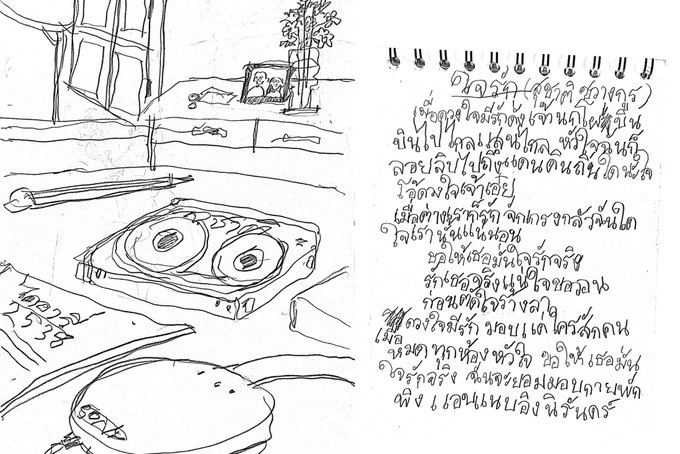 ใจรัก (สุชาติ ชวางกูร)
เมื่อดวงใจมีรักดั่งเจ้านกโผบิน
บินไปไกลแสนไกล หัวใจฉันก็
ลอยลิบไปถึงแดนดินถิ่นใด
โอ้ดวงใจเจ้าเอ๋ย
เมื่อต่างเราก็รัก จักเกรงกลัวฉันใด
ใจเรานั้นแน่นอน
ขอให้เธอมั่นใจรักจริง
รักเธอจริงแน่ใจขอวอน
ก่อนตัดใจร้างลา
เมื่อดวงใจมีรัก มอบแด่ใครสักคน
หมดทุกห้องหัวใจ ขอให้เธอมั่น
ใจรักจริง ฉันจะยอมมอบกายพัก
พิง แอบแนบอิงนิรันดร์
2538
SONY